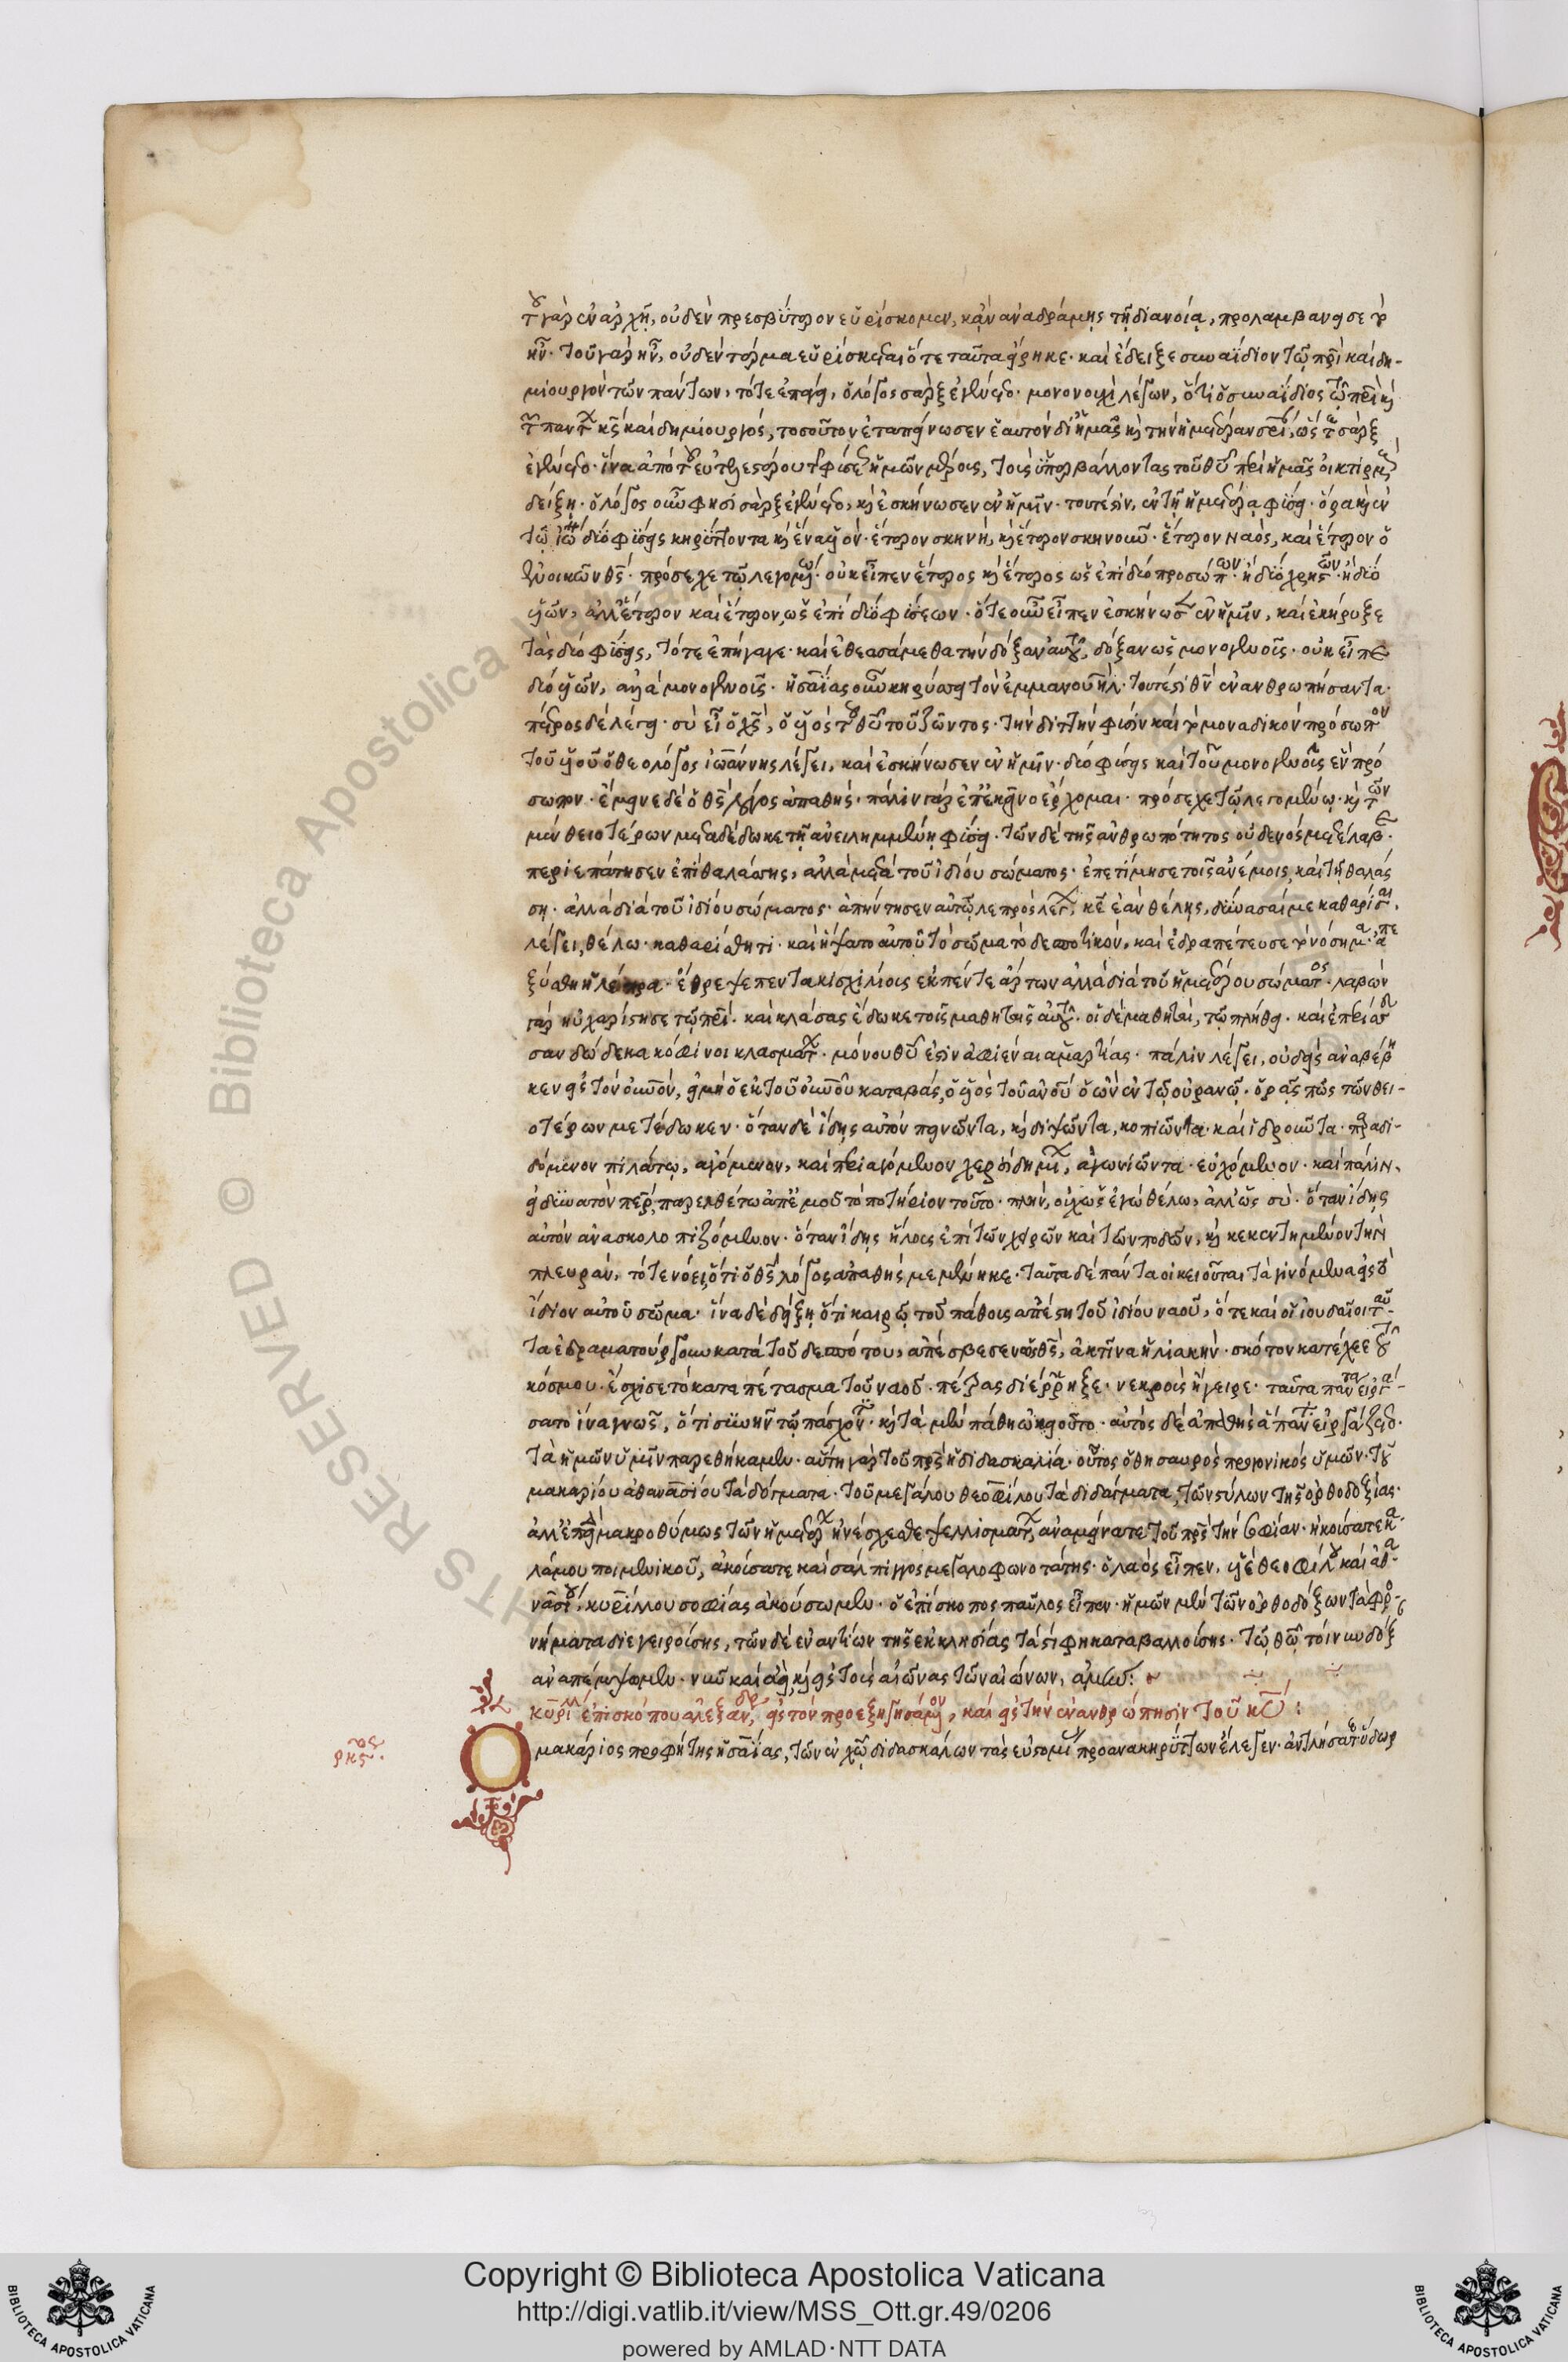 τοῦ γὰρ ἐν ἀρχῆ, οὐδὲν πρεσβύτερον εὑρίσκομεν, κἂν ἀναδράμης τῆ διανοίᾳ, προλαμβάνει σε τὸ
ἦν· τοῦ γὰρ ἦν, οὐδὲν τέρμα εὑρίσκεται ὅτε ταῦτα εἴρηκε· καὶ ἔδειξε συναΐδιον τῷ πρὶ καὶ δη-
μιουργὸν τῶν πάντων, τότε ἐπάγει, ὁ λόγος σὰρξ ἐγένετο· μονονουχὶ λέγων, ὅτι ὁ συναΐδιος τῷ πρὶ καὶ
τῶν πάντων κς καὶ δημιουργός, τοσοῦτον ἐταπείνωσεν ἑαυτὸν δι' ἡμᾶς καὶ τὴν ἡμετέραν σρίαν, ὥστε σὰρξ
ἐγένετο· ἵνα ἀπὸ τοῦ εὐτελεστέρου τῆς φύσεως ἡμῶν μέρους, τοὺς ὑπερβάλλοντας τοῦ θυ περὶ ἡμᾶς οἰκτιρμοὺς
δείξη· ὁ λόγος οὖν φησὶ σὰρξ ἐγένετο, καὶ ἐσκήνωσεν ἐν ἡμῖν· τουτέστιν, ἐν τῆ ἡμετέρᾳ φύσει· ὅρα καὶ ἐν
τῷ ἰω δύο φύσεις κηρύττοντα καὶ ἕνα υἱόν· ἕτερον σκηνὴ, καὶ ἕτερον σκηνοῦν· ἕτερον ναὸς, καὶ ἕτερον ὁ
ἐνοικῶν θς· πρόσεχε τῷ λεγομένῳ· οὐκ εἶπεν ἕτερος καὶ ἕτερος ὡς ἐπὶ δύο προσώπων· ἢ δύο χριστῶν· ἢ δύο
υἱῶν, ἀλλ' ἕτερον καὶ ἕτερον, ὡς ἐπὶ δύο φύσεων· ὅτε οὖν εἶπεν ἐσκήνωσεν ἐν ἡμῖν, καὶ ἐκήρυξε
τὰς δύο φύσεις, τότε ἐπήγαγε· καὶ ἐθεασάμεθα τὴν δόξαν αὐτοῦ, δόξαν ὡς μονογενοῦς· οὐκ εἶπε
δύο υἱῶν, ἀλλὰ μονογενοῦς· ἡσαΐας οὖν κηρύσσει τὸν ἐμμανουὴλ· τουτέστι θν ἐνανθρωπήσαντα·
πέτρος δὲ λέγει· σὺ εἶ ὁ χς, ὁ υἱὸς τοῦ θυ τοῦ ζῶντος· τὴν διττὴν φύσιν καὶ τὸ μοναδικὸν πρόσωπον
τοῦ υἱοῦ ὁ θεολόγος ἰωάννης λέγει, καὶ ἐσκήνωσεν ἐν ἡμῖν· δύο φύσεις καὶ τοῦ μονογενοῦς ἓν πρό
σωπον· ἔμεινε δὲ ὁ θς λόγος ἀπαθής· πάλιν γὰρ ἐπ' ἐκεῖνο ἔρχομαι· πρόσεχε τῷ λεγομένῳ· καὶ τῶν
μὲν θειοτέρων μεταδέδωκε τῆ ἀνειλημμένη φύσει· τῶν δὲ τῆς ἀνθρωπότητος οὐδενὸς μετέλαβε·
περιεπάτησεν ἐπὶ θαλάσσης, ἀλλὰ μετὰ τοῦ ἰδίου σώματος· ἐπετίμησε τοῖς ἀνέμοις, καὶ τῆ θαλάσ
ση· ἀλλὰ διὰ τοῦ ἰδίου σώματος· ἀπήντησεν αὐτῷ λεπρὸς λέγων, κε ἐὰν θέλης, δύνασαί με καθαρίσαι,
λέγει, θέλω· καθαρίσθητι· καὶ ἥψατο αὐτοῦ τὸ σῶμα τὸ δεσποτικὸν, καὶ ἐδραπέτευσε τὸ νόσημα· ἀπε
ξύσθη ἡ λέπρα· ἔθρεψε πεντακισχιλίους ἐκ πέντε ἄρτων ἀλλὰ διὰ τοῦ ἡμετέρου σώματος· λαβὼν
γὰρ ηὐχαρίστησε τῷ πρὶ· καὶ κλάσας ἔδωκε τοῖς μαθηταῖς αὐτοῦ· οἱ δὲ μαθηταὶ, τῷ πλήθει· καὶ ἐπερίσσευ
σαν δώδεκα κόφινοι κλασμάτων· μόνου θυ ἐστὶν ἀφιέναι ἁμαρτίας· πάλιν λέγει, οὐδεὶς ἀναβέβη
κεν εἰς τὸν οὐνὸν, εἰ μὴ ὁ ἐκ τοῦ οὐνοῦ καταβάς, ὁ υἱὸς τοῦ ἀνου ὁ ὢν ἐν τῷ οὐρανῷ· ὁρᾷς πῶς τῶν θει-
οτέρων μετέδωκεν· ὅταν δὲ ἴδης αὐτὸν πεινῶντα, καὶ διψῶντα, κοπιῶντα· καὶ ἱδροῦντα· παραδι-
δόμενον πιλάτῳ, ἀγόμενον, καὶ περιαγόμενον χερσὶ δημίων, ἀγωνιῶντα· εὐχόμενον· καὶ πάλιν,
εἰ δυνατὸν περ, παρελθέτω ἀπ' ἐμοῦ τὸ ποτήριον τοῦτο· πλὴν, οὐχ ὡς ἐγὼ θέλω, ἀλλ' ὡς σύ· ὅταν ἴδης
αὐτὸν ἀνασκολοπιζόμενον· ὅταν ἴδης ἥλους ἐπὶ τῶν χειρῶν καὶ τῶν ποδῶν, καὶ κεκεντημένον τὴν
πλευρὰν, τότε νόει, ὅτι ὁ θς λόγος ἀπαθὴς μεμένηκε· ταῦτα δὲ πάντα οἰκειοῦται τὰ γινόμενα εἰς τὸ
ἴδιον αὐτοῦ σῶμα· ἵνα δὲ δείξη ὅτι καιρῷ τοῦ πάθους ἀπέστη τοῦ ἰδίου ναοῦ, ὅτε καὶ οἱ ἰουδαῖοι ταῦ-
τα ἐδραματούργουν κατὰ τοῦ δεσπότου, ἀπέσβεσεν ὡς θς, ἀκτῖνα ἡλιακήν· σκότον κατέχεε τοῦ
κόσμου· ἔσχισε τὸ καταπέτασμα τοῦ ναοῦ· πέτρας διέρρηξε· νεκροὺς ἤγειρε· ταῦτα πάντα εἰργά-
σατο ἵνα γνῶς, ὅτι συνῆν τῷ πάσχοντι· καὶ τὰ μὲν πάθη ᾠκειοῦτο· αὐτὸς δὲ ἀπαθὴς ἅπαντα εἰργάζετο·
τὰ ἡμῶν ὑμῖν παρεθήκαμεν· αὕτη γὰρ τοῦ πρς ἡ διδασκαλία· οὗτος ὁ θησαυρὸς προγονικὸς ὑμῶν· τοῦ
μακαρίου ἀθανασίου τὰ δόγματα· τοῦ μεγάλου θεοφίλου τὰ διδάγματα, τῶν στύλων τῆς ὀρθοδοξίας·
ἀλλ' ἐπειδὴ μακροθύμως τῶν ἡμετέρων ἠνέσχεσθε ψελλισμάτων, ἀναμείνατε τοῦ πρς τὴν σοφίαν· ἠκούσατε κα
λάμου ποιμενικοῦ, ἀκούσατε καὶ σάλπιγγος μεγαλοφωνοτάτης· ὁ λαὸς εἶπεν, υἱὲ θεοφίλου καὶ ἀθα-
νασίου, κυρίλλου σοφίας ἀκούσωμεν· ὁ ἐπίσκοπος παῦλος εἶπεν· ἡμῶν μὲν τῶν ὀρθοδόξων τὰ φρο-
νήματα διεγειρούσης, τῶν δὲ ἐναντίων τῆς ἐκκλησίας τὰ στίφη καταβαλλούσης· τῷ θῷ τοίνυν δόξαν
ἀναπέμψωμεν· νῦν καὶ ἀεὶ, καὶ εἰς τοὺς αἰῶνας τῶν αἰώνων, ἀμήν:
κυρίλλου ἐπισκόπου ἀλεξανδρ, εἰς τὸν προεξηγησάμενον, καὶ εἰς τὴν ἐνανθρώπησιν τοῦ κυ:
Ὁ μακάριος προφήτης ἡσαΐας, τῶν ἐν χῷ διδασκάλων τὰς εὐστομίας προανακηρύττων ἔλεγεν· ἀντλήσατε ὕδωρ
Copyright © Biblioteca Apostolica Vaticana
http://digi.vatlib.it/view/MSS_Ott.gr.49/0206
powered by AMLAD·NTT DATA
BIBLIOTECA APOSTOLICA VATICANA
BIBLIOTECA APOSTOLICA VATICANA